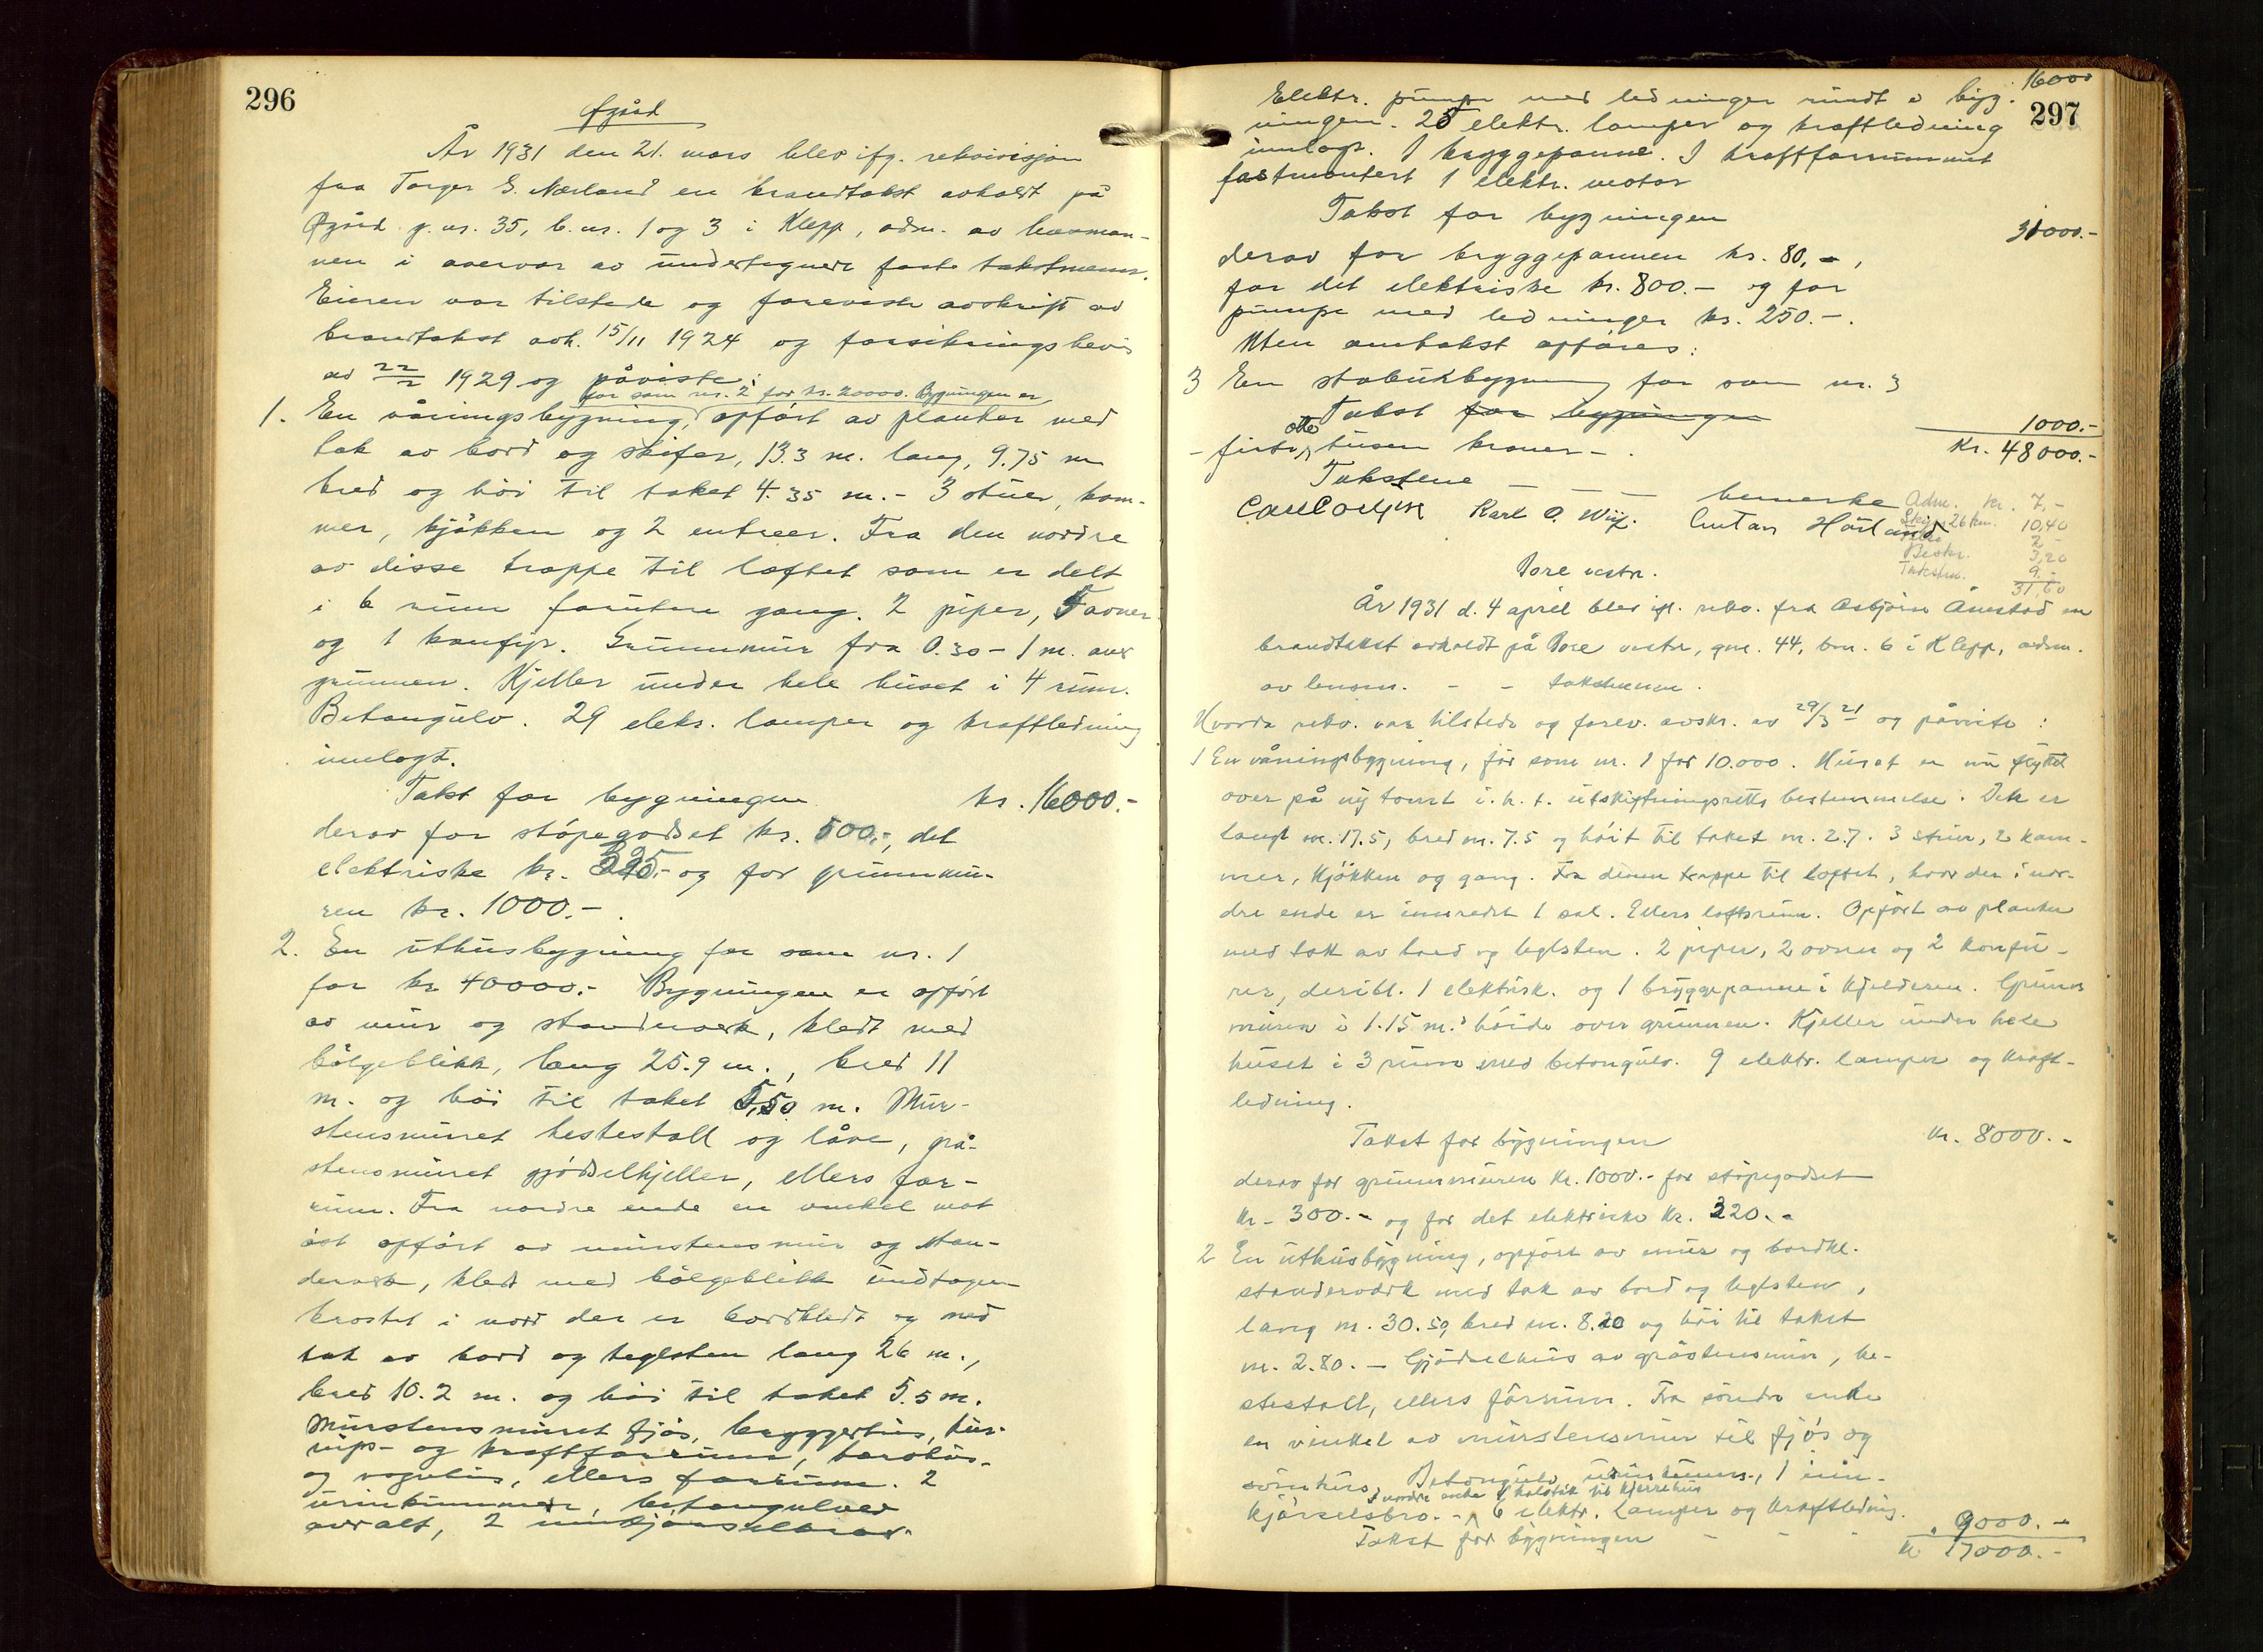 296
Øgård
År 1931 den 21. mars blev ifg. rekvisisjon
fra Torger E. Nærland en brandtakst avholdt på
Øgård g.nr. 35, b.nr. 1 og 3 i Klepp, adm. av lensman-
nen i overvær av undertegnede faste takstmenn.
Eieren var tilstede og foreviste avskrift av
brandtakst avh. 15/11 1924 og forsikringsbevis
av 22/2 1929 og påviste:
før som nr. 2 for kr. 20000. Bygningen er
1. En våningsbygning, opført av planker med
tak av bord og skifer, 13.3 m. lang, 9.75 m
bred og høi til taket 4.35 m. - 3 stuer, kam-
mer, kjøkken og 2 entreer. Fra den nordre
av disse trappe til loftet som er delt
i 6 rum foruten gang. 2 piper, 5 ovner
og 1 komfyr. Grunnmur fra 0.30 - 1 m. over
grunnen. Kjeller under hele huset i 4 rum.
Betongulv. 29 elekr. lamper og kraftledning
innlagt.
Takst for bygningen kr. 16000.-
derav for støpegodset kr. 500,-, det
elektriske kr. og for grunnmu-
ren kr. 1000.-
2. En uthusbygning før som nr. 1
for kr 40000.- Bygningen er opført
av mur og standerverk, kledt med
bølgeblikk, lang 25.9 m., bred 11
m. og høi til taket 5,50 m. Mur-
stensmuret hestestall og låve, grå-
stensmuret gjødselkjeller, ellers for-
rum. Fra nordre ende en vinkel mot
øst opført av murstensmur og stan-
derverk, kledt med bølgeblikk undtagen
brøstet i nord der er bordkledt og med
tak av bord og teglsten lang 26 m.,
bred 10.2 m. og høi til taket 5.5 m.
Murstensmuret fjøs, bryggerhus, tur-
nips- og kraftforrum,
og vognhus, ellers forrum. 2
urinkummer, betongulver
overalt, 2 innkjørselbroer.
297
16000
Elektr. pumpe med ledninger rundt i byg-
ningen. 25 elektr. lamper og kraftledning
innlagt. 1 bryggepanne. I kraftforrummet
fastmontert 1 elektr. motor
Takst for bygningen 31000.-
derav for bryggepannen kr. 80,-,
for det elektriske kr. 800.- og for
pumpe med ledninger kr. 250.-.
Uten omtakst opføres:
3 En stabursbygning før som nr. 3
Takst for bygningen 1000.-
- firti otte tusen kroner - . Kr. 48000.-
Takstene - - - bemerke
Karl O. Wiig. Gustav Hårland
Adm. kr. 7,-
Skyss 26 km. 10,40
2 -
Beskr. 3,20
Takstm. 9.-
31,60
Pore vestr.
År 1931 d. 4 april blev ifl. rekv. fra Asbjørn Ånestad en
brandtakst avholdt på Pore vestr, gnr. 44, bnr. 6 i Klepp, adm.
av lensm. - - takstmenn.
Hvorda rekv. var tilstede og forev. avskr. av 29/3 21 og påviste:
1 En våningsbygning, før som nr. 1 for 10.000. Huset er nu flyttet
over på ny tomt i.h.t. utskiftningsretts bestemmelse. Det er
langt m. 17.5, bred m. 7.5 og høit til taket m. 2.7. 3 stuer, 2 kam-
mer, kjøkken og gang. Fra denne trappe til loftet, hvor der i nor-
dre ende er innredet 1 sal. Ellers loftsrum. Opført av planker
med takk av bord og teglsten. 2 piper, 2 ovner og 2 komfy-
rer, deribl. 1 elektrisk. og 1 bryggepanne i kjelderen. Grunn
muren i 1.15 m.s høide over grunnen. Kjeller under hele
huset i 3 rum med betongulv. 9 elektr. lamper og kraft-
ledning.
Takst for bygningen kr. 8000.-
derav for grunnmuren kr. 1000.- for støpegodset
kr. 300.- og for det elektriske kr. 320.-
2 En uthusbygning, opført av mur og bordkl.
standerverk med tak av bord og teglsten,
lang m. 30.50, bred m. 8.20 og høi til taket
m. 2.80. - Gjødselhus av gråstensmur, he-
stestall, ellers fôrrum. Fra søndre ende
en vinkel av murstensmur til fjøs og
svinehus, Betongulv, urinkumme, 1 inn-
I nordre ende 1 halvtak til kjerrehus
kjørselsbro. - 6 elektr. lamper og kraftledning.
Takst for bygningen - - - " 9000.-
kr 17000.-